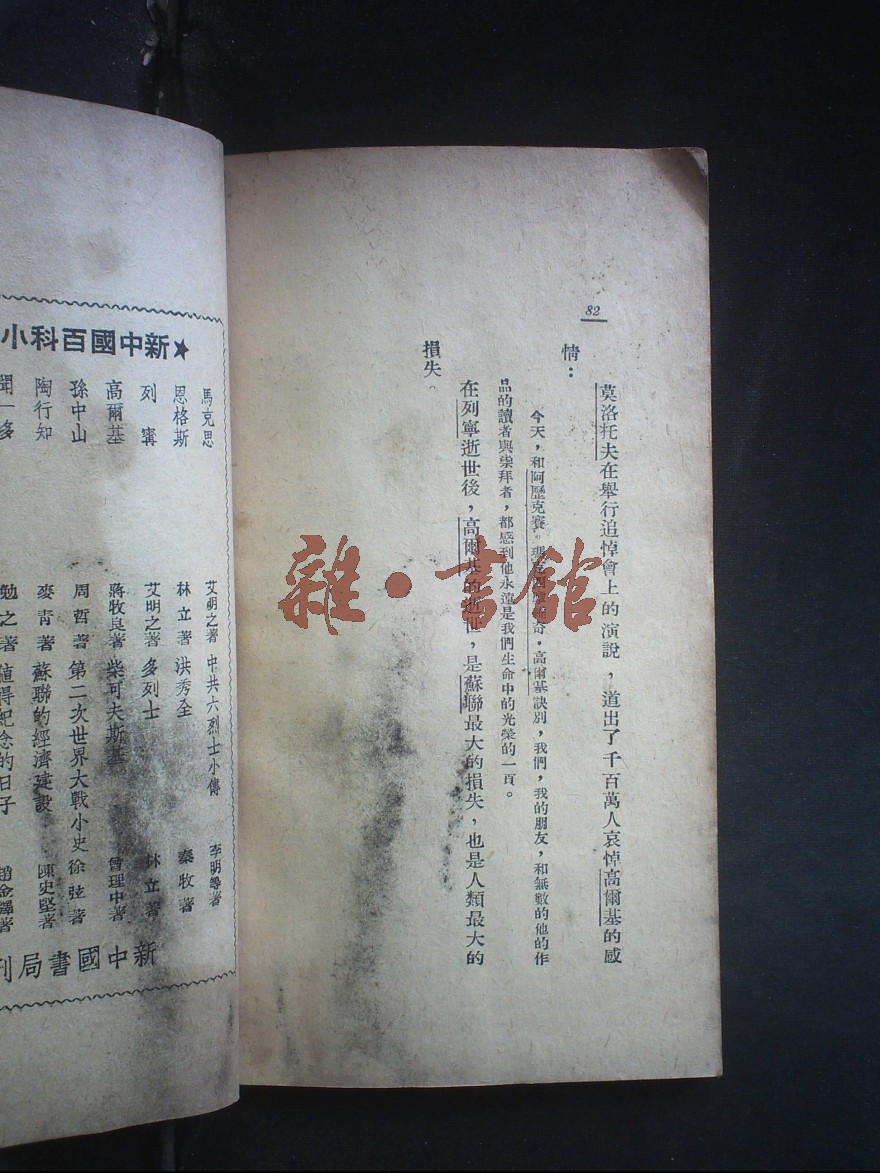 82
莫洛托夫在舉行追悼會上的演說，道出了千百萬人哀悼高爾基的感
情：
今天，和阿歷克賽。瑪克西姆維奇·高爾基訣別，我們，我的朋友，和無數的他的作
品的讀者與崇拜者，都感到他永遠是我們生命中的光榮的一頁。
在列寧逝世後，高爾基的逝世，是蘇聯最大的損失，也是人類最大的
損失。
雜·書館
★新中國百科小
馬克思 艾明之著
恩格斯 林立著
列寗 艾明之著
高爾基 蔣牧良著
孫中山 周哲著
陶行知 麥青著
聞一多 勉之著
中共六烈士小傳 李明等著
洪秀全 秦牧著
多列士 林立著
柴可夫斯基 曾理中著
第二次世界大戰小史 徐弦著
蘇聯的經濟建設 陳史堅著
值得紀念的日子 趙金鐸著
新中國書局刊